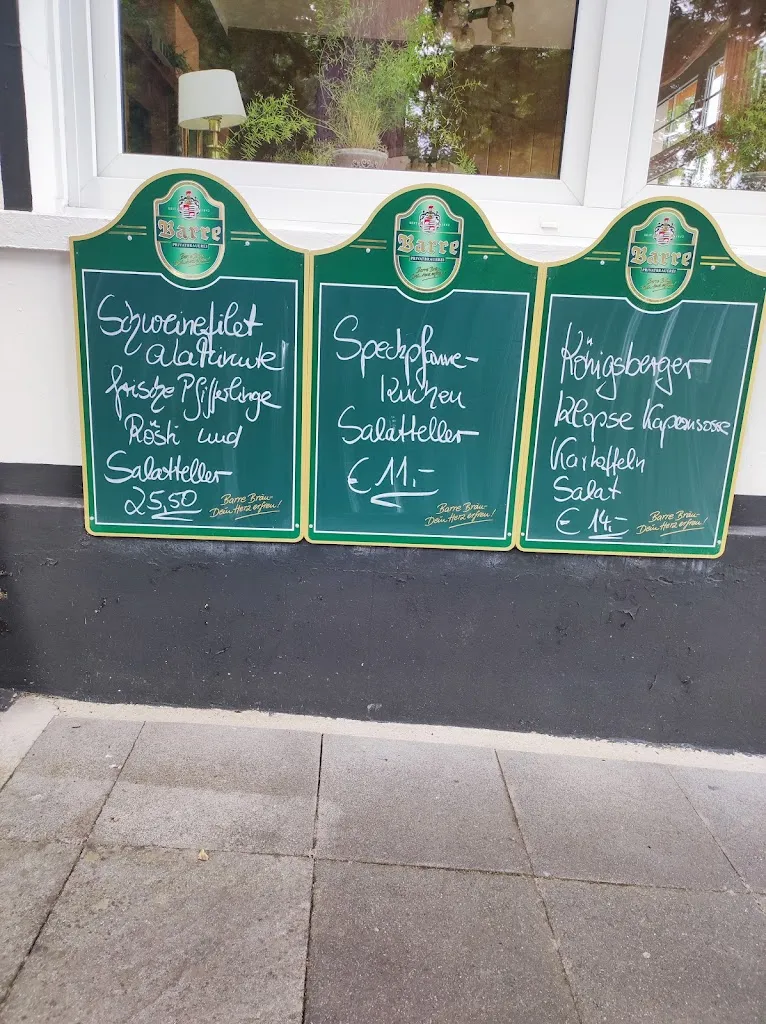 Barre
PRIVATBRAUEREI
Schweinefilet
alaminute
frische Pfifferlinge
Rösti und
Salatteller
25,50
Barre Bräu-
Dein Herz erfreu!
Barre
PRIVATBRAUEREI
Speckpfanne-
kuchen
Salatteller
€ 11,-
Barre Bräu-
Dein Herz erfreu!
Barre
PRIVATBRAUEREI
Königsberger
Klopse Kapernsosse
Kartoffeln
Salat
€ 14,-
Barre Bräu-
Dein Herz erfreu!